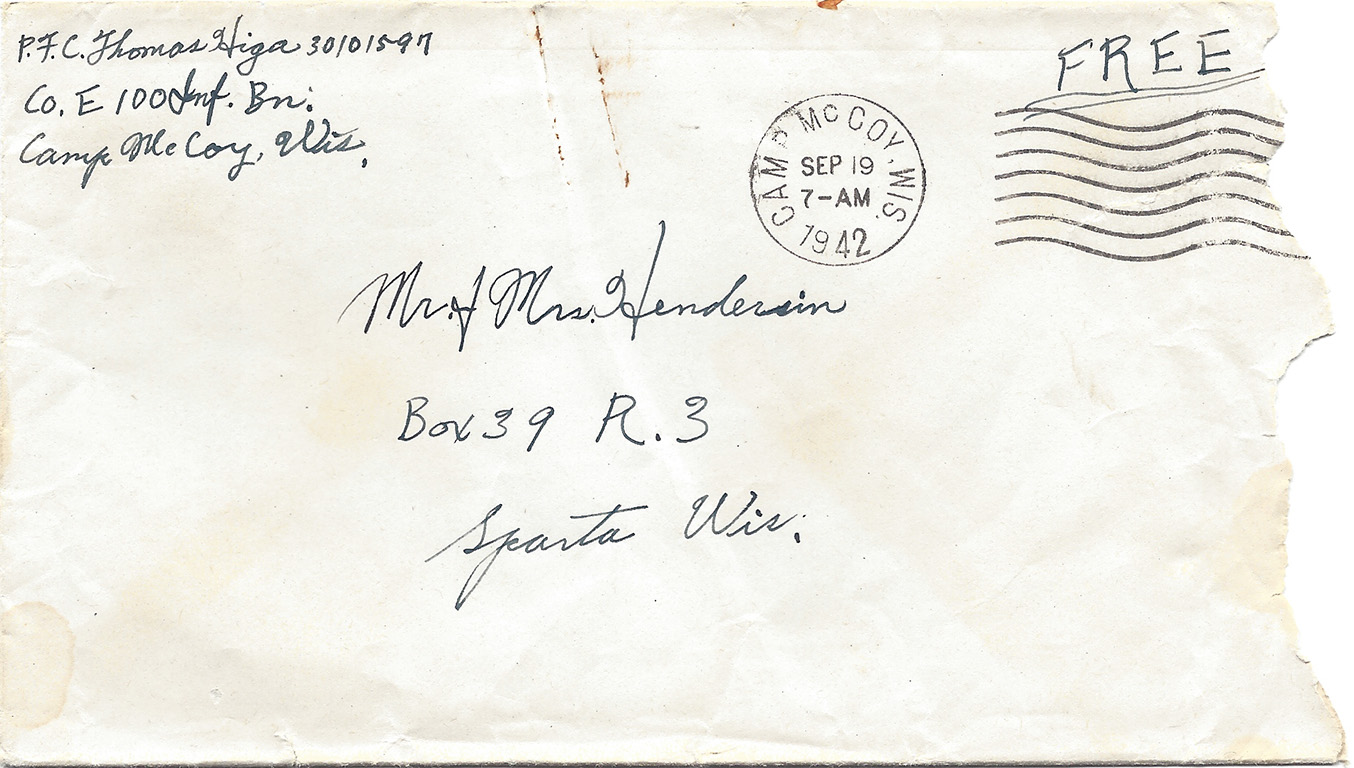 P.F.C. Thomas Higa 30101597
Co. E 100 Inf. Bn:
Camp McCoy, Wis.
FREE
CAMP McCOY, WIS.
SEP 19
7-AM
1942
Mr. & Mrs. Hendersin
Box 39 R. 3
Sparta Wis.